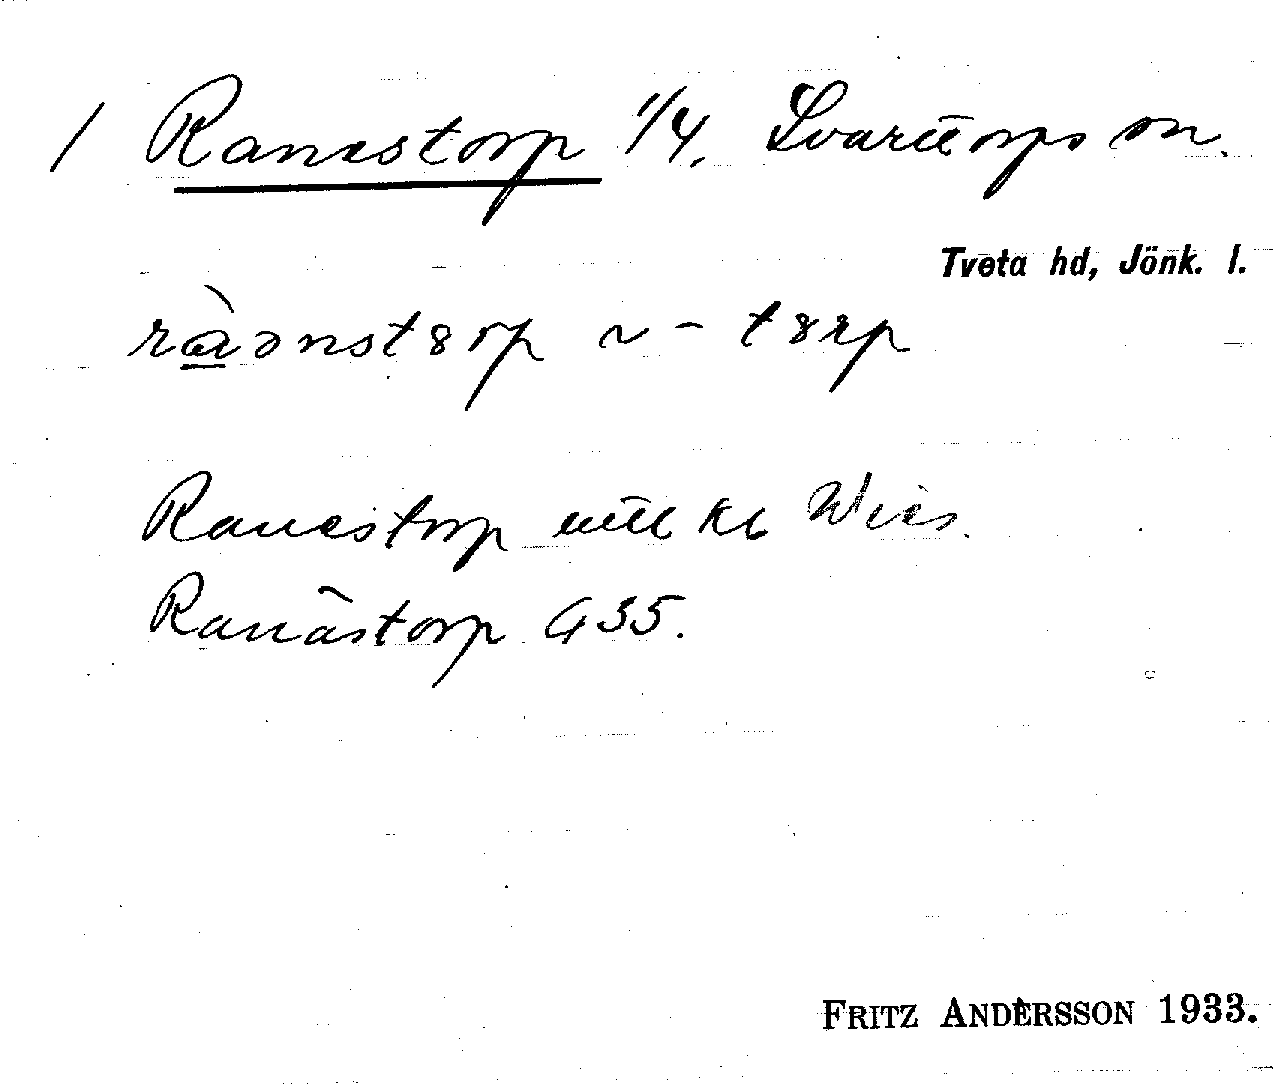 / Ranestorp 1/4. Svarttorps sn.
Tveta hd, Jönk. l.
ràənst8rp ~ - t8rp
Ranestorp
Ranåstorp G 35.
FRITZ ANDERSSON 1933.